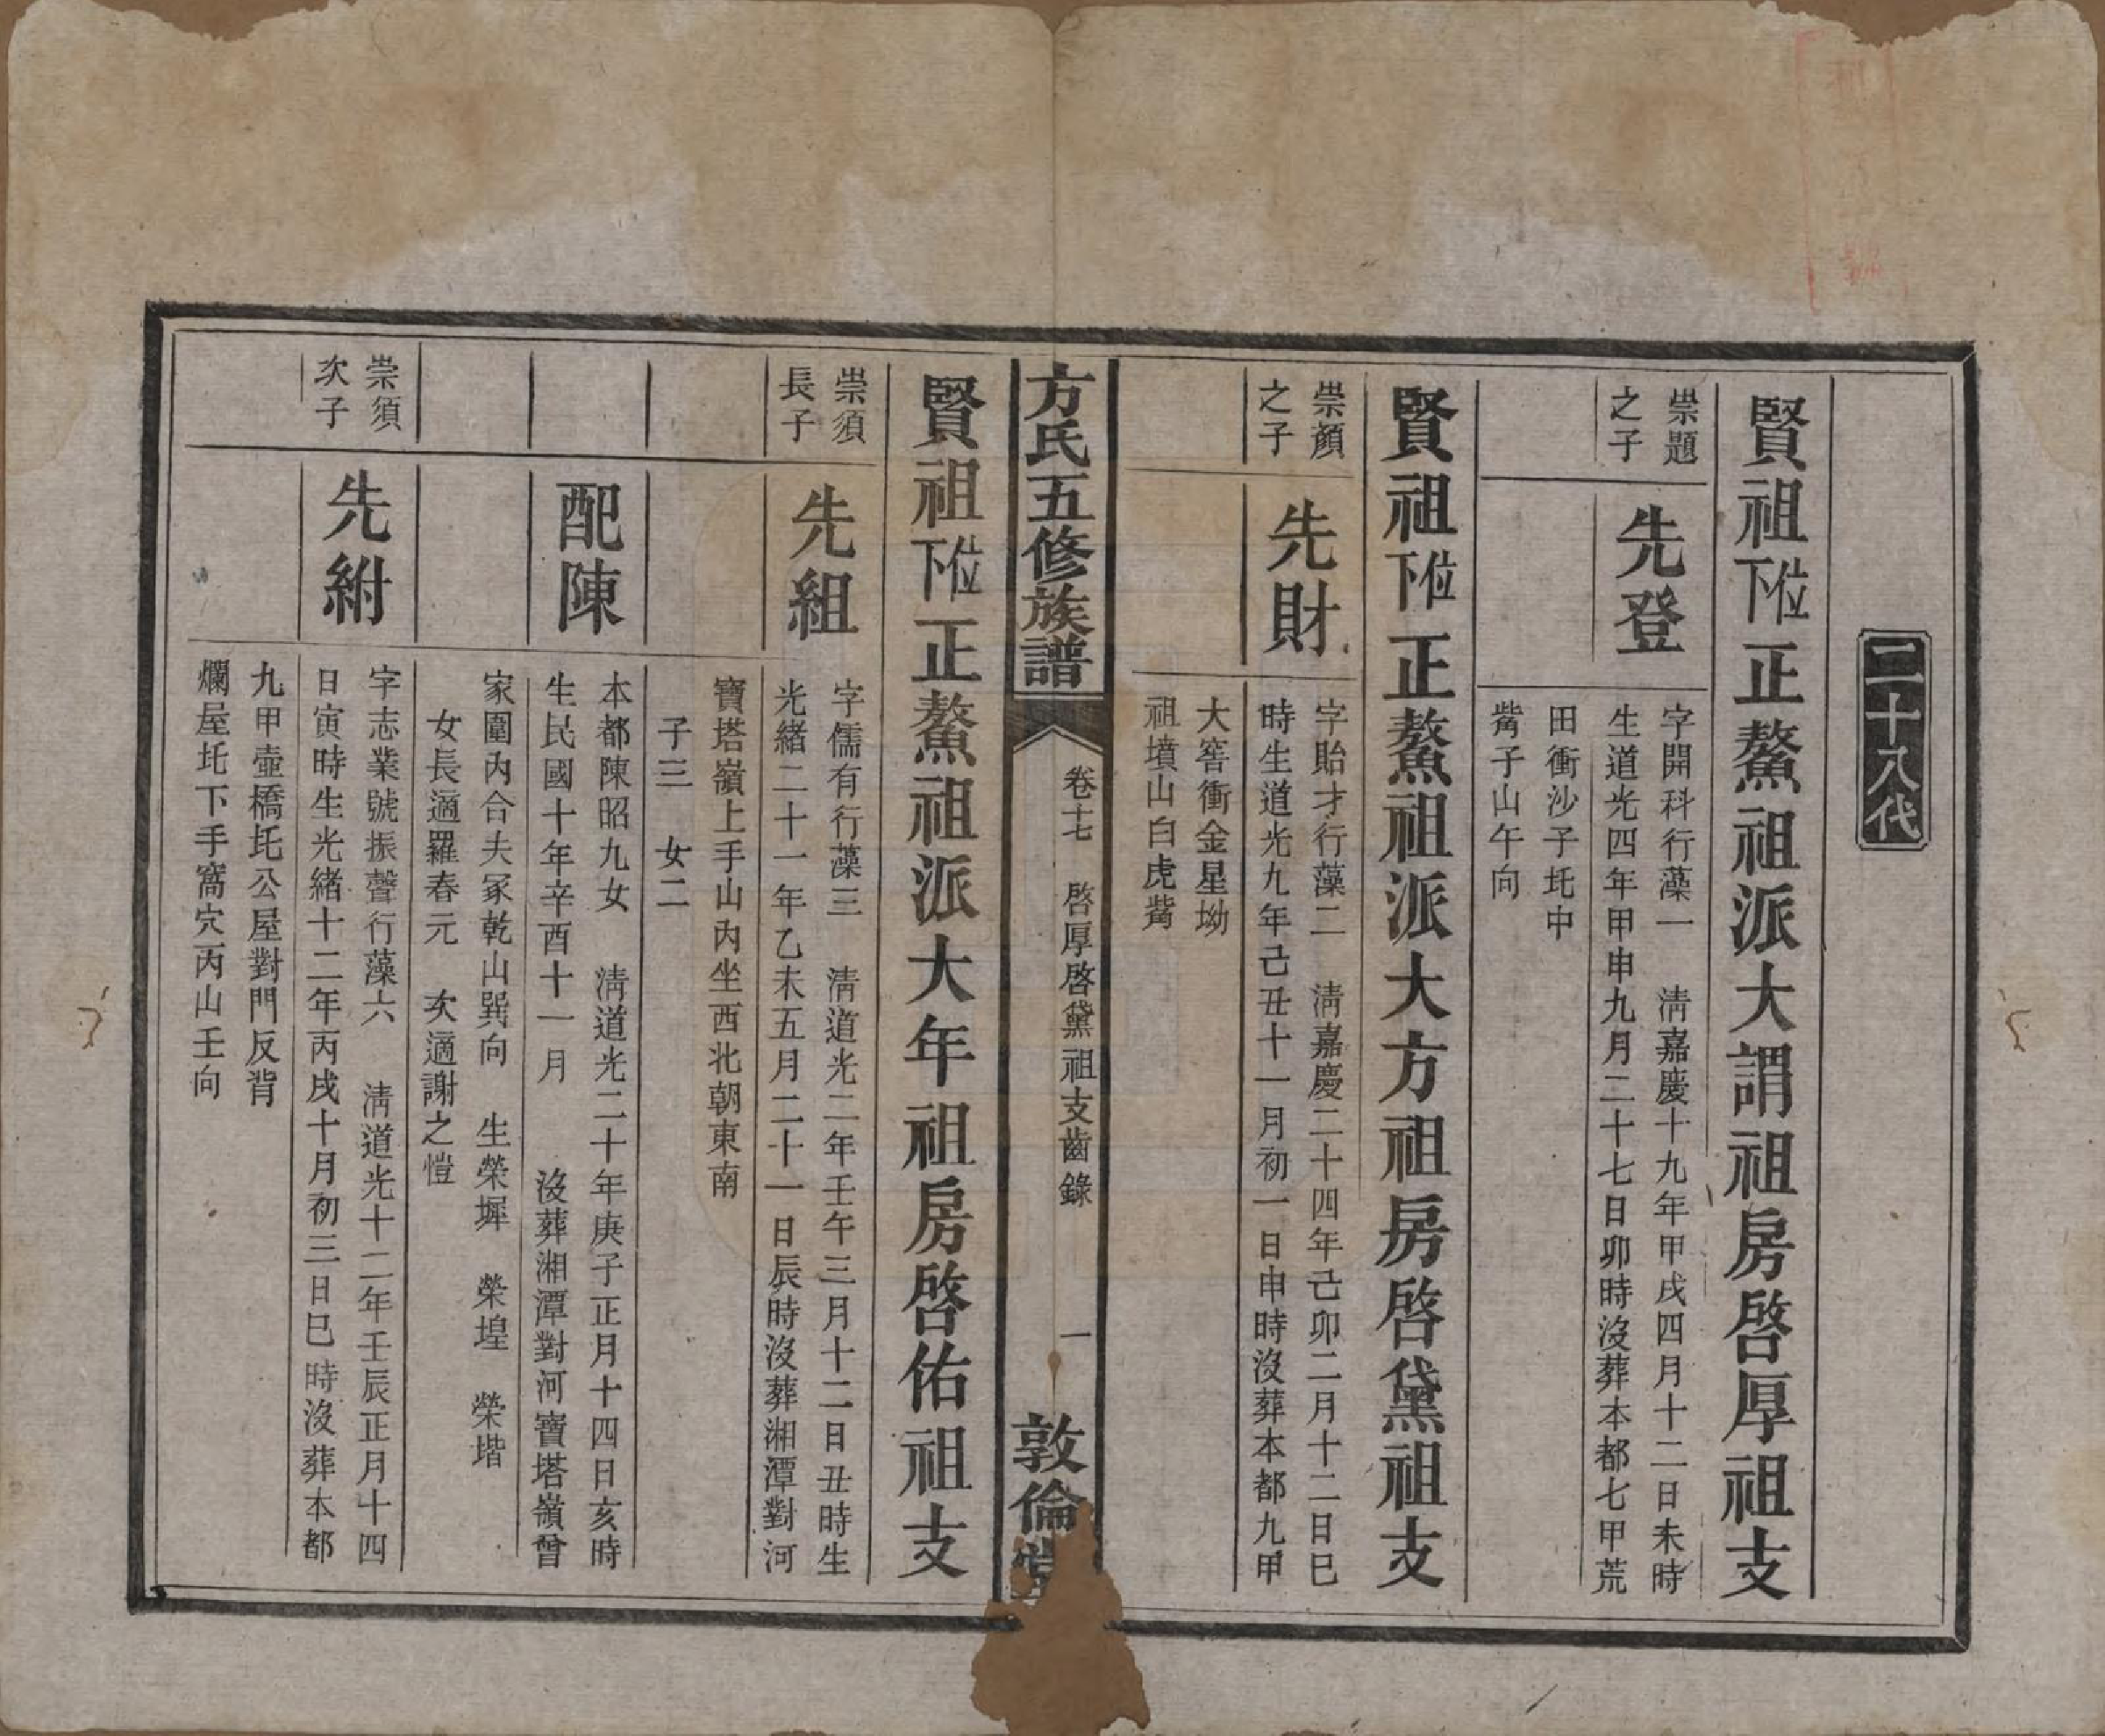 二十八代
賢祖位下正鰲祖派大謂祖房啓厚祖支
崇題
之子
先登
字開科行藻一　淸嘉慶十九年甲戌四月十二日未時
生道光四年甲申九月二十七日卯時沒葬本都七甲荒
田衝沙子坉中
觜子山午向
賢祖位下正鰲祖派大方祖房啓黛祖支
崇顏
之子
先財
字貽才行藻二　淸嘉慶二十四年己卯二月十二日巳
時生道光九年己丑十一月初一日申時沒葬本都九甲
大窖衝金星坳
祖墳山白虎觜
方氏五修族譜
卷十七　啓厚啓黛祖支齒錄
一
敦倫堂
賢祖位下正鰲祖派大年祖房啓佑祖支
崇須
長子
先組
字儒有行藻三　淸道光二年壬午三月十二日丑時生
光緒二十一年乙未五月二十一日辰時沒葬湘潭對河
寶塔嶺上手山內坐西北朝東南
子三　女二
配陳
本都陳昭九女　淸道光二十年庚子正月十四日亥時
生民國十年辛酉十一月　沒葬湘潭對河寶塔嶺曾
家圍內合夫冢乾山巽向　生榮墀　榮堭　榮堦
女長適羅春元　次適謝之愷
崇須
次子
先紨
字志業號振聲行藻六　淸道光十二年壬辰正月十四
日寅時生光緒十二年丙戌十月初三日巳時沒葬本都
九甲壺橋坉公屋對門反背
爛屋坉下手窩穴丙山壬向